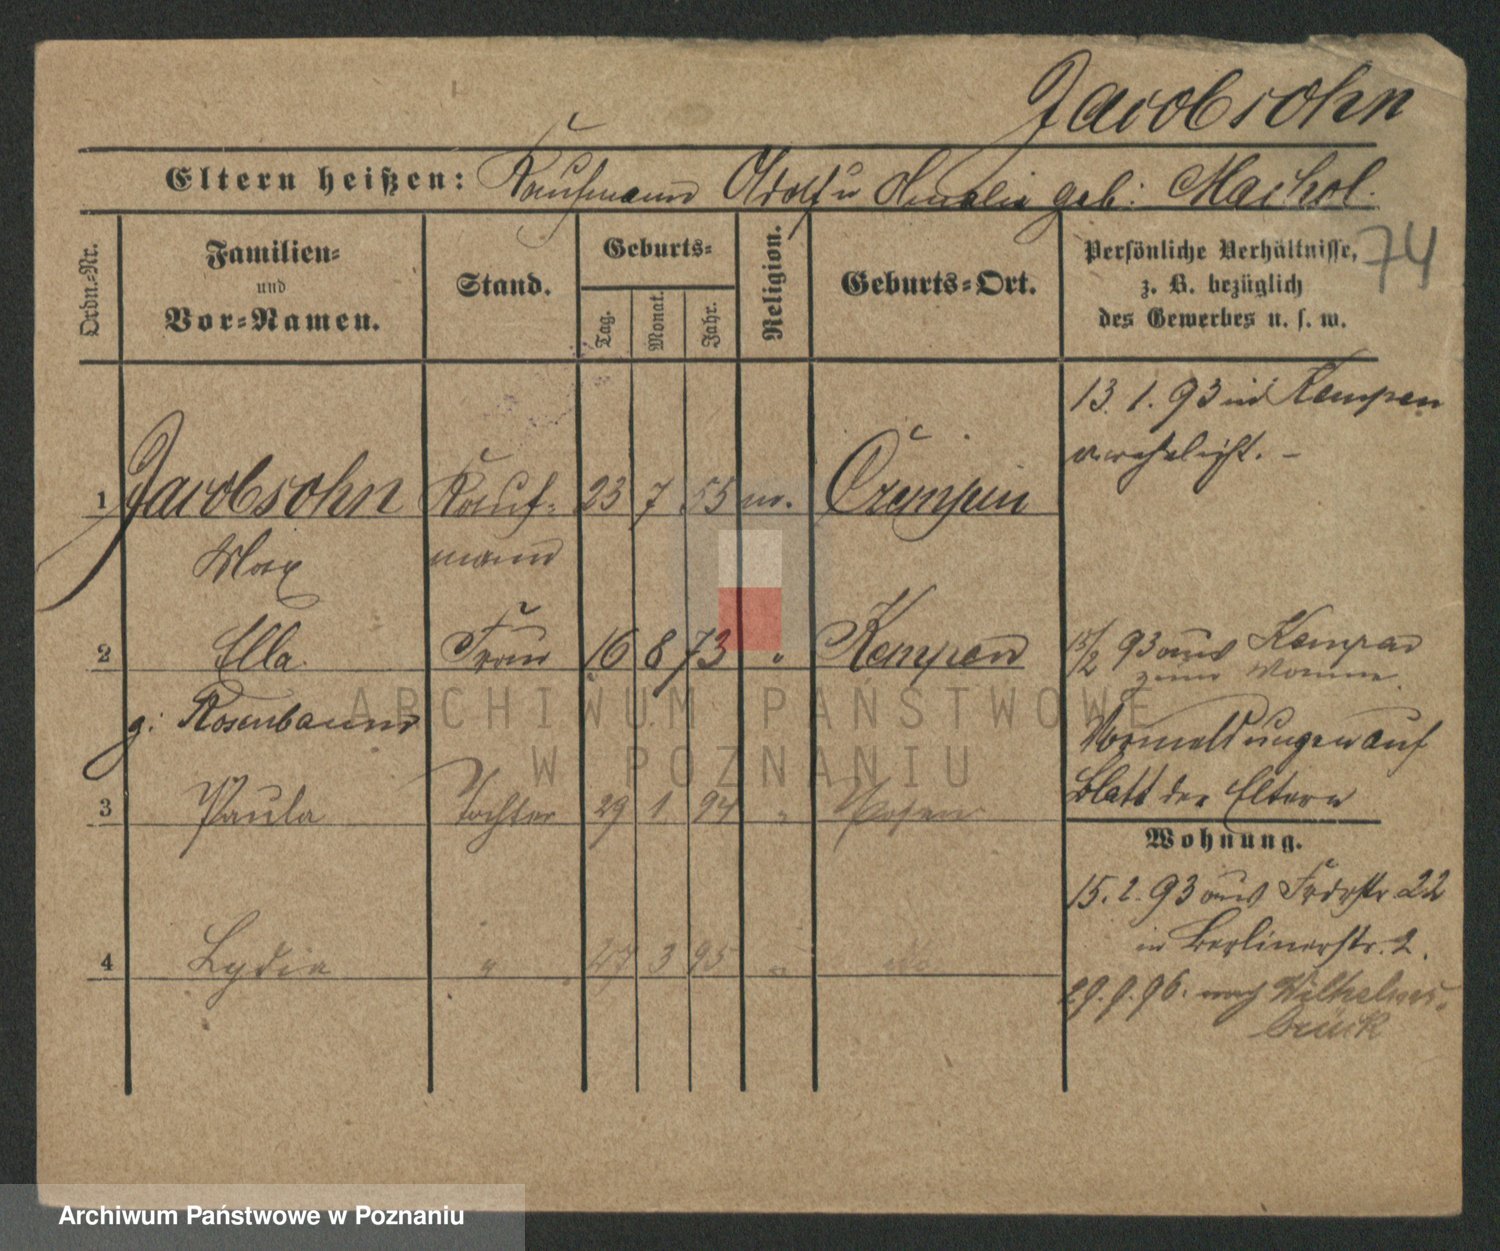 Jacobsohn
Eltern heißen: Kaufmann Adolf u Amalie geb: Machol.
74
Ordn.-Nr.
Familien-
und
Vor-Namen.
Stand.
Geburts-
Tag.
Monat.
Jahr.
Religion.
Geburts-Ort.
Persönliche Verhältnisse,
z. B. bezüglich
des Gewerbes u. s. w.
13. 1. 93 in Kempen
verehelicht. –
1 Jacobsohn Kauf- 23 7 55 m.
Max mann
2 Ella Frau 16 8 73 " Kempen
15/2 93 aus Kempen
g: Rosenbaum
Vormeldungen auf
Blatt der Eltern
3 Paula Tochter 29 1 94 " Posen
Wohnung.
15. 2. 93 aus Frdrstr. 22
in Berlinerstr. 2.
4 Lydia " 27 3 95 " do
29. 9. 96. nach Wilhelms-
brück
ARCHIWUM PAŃSTWOWE
W POZNANIU
Archiwum Państwowe w Poznaniu